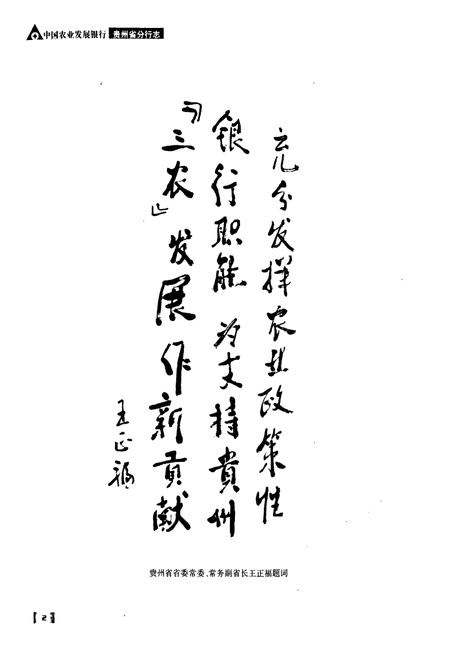 中国农业发展银行 贵州省分行志
充分发挥农业政策性
银行职能为支持貴州
「三农」发展作新贡献
王正福
贵州省省委常委、常务副省长王正福题词
【2】